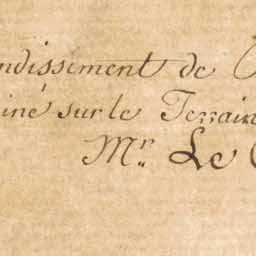 ndissement de
iné sur le Terrain
Mr. Le